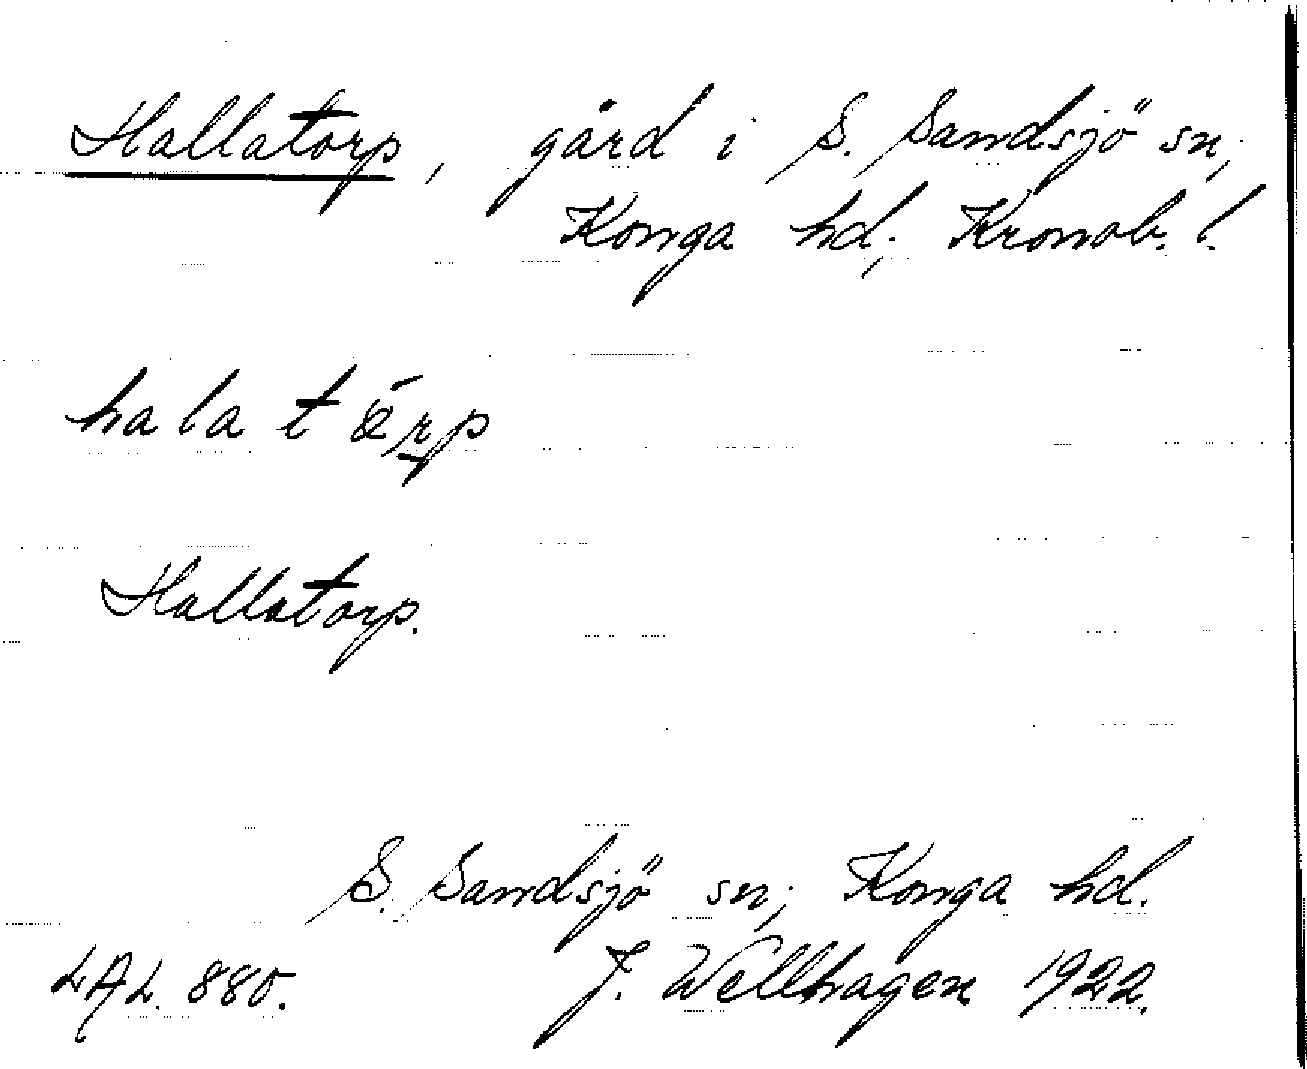 Hallatorp, gård i S. Sandsjö sn,
Konga hd, Kronob. l.
hala tärp
Hallatorp.
S. Sandsjö sn; Konga hd.
LAL. 880. J. Wellhagen 1922.